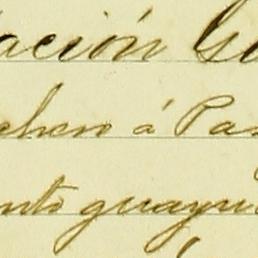 ación G
chen á Pa
nto guaya